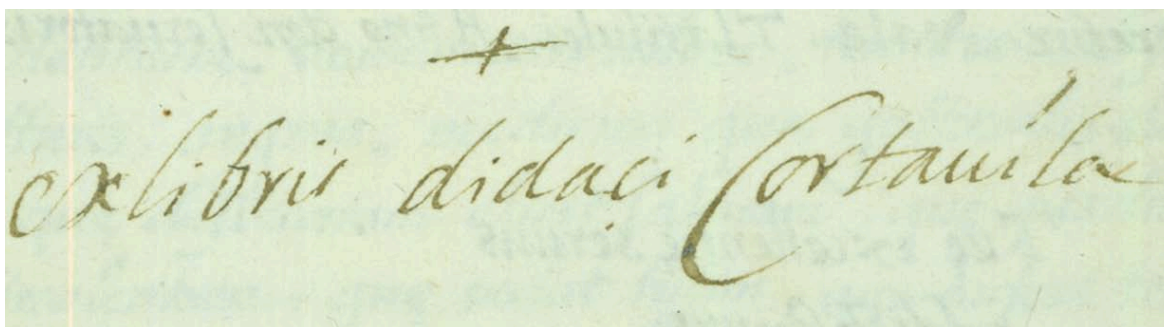 +
ex libris didaci Cortauila